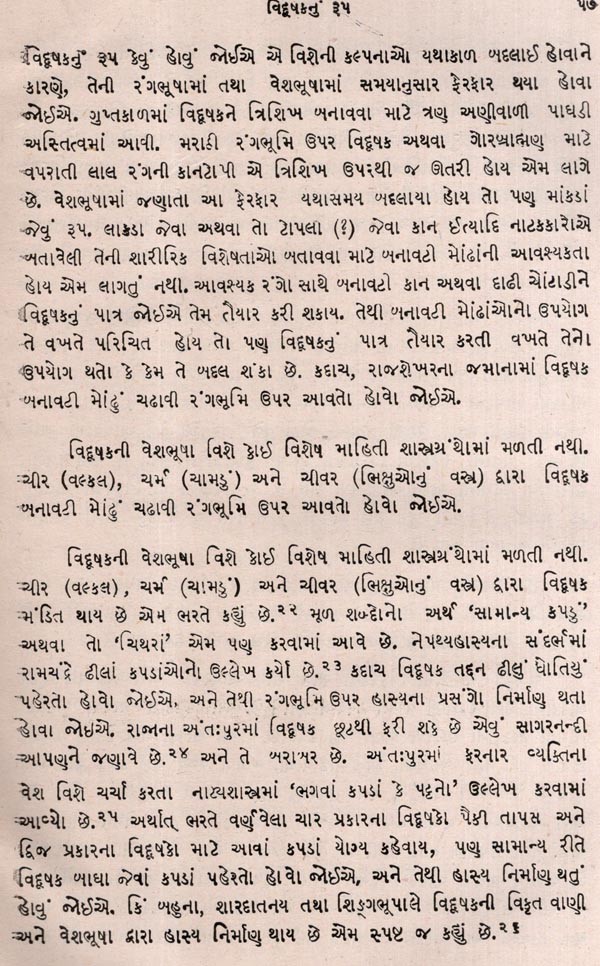 વિદૂષકનું રૂપ ૫૭
વિદૂષકનું રૂપ કેવું હોવું જોઈએ એ વિશેની કલ્પનાઓ યથાકાળ બદલાઈ હોવાને
કારણે, તેની રંગભૂષામાં તથા વેશભૂષામાં સમયાનુસાર ફેરફાર થયા હોવા
જોઈએ. ગુપ્તકાળમાં વિદૂષકને ત્રિશિખ બનાવવા માટે ત્રણ અણીવાળી પાઘડી
અસ્તિત્વમાં આવી. મરાઠી રંગભૂમિ ઉપર વિદૂષક અથવા ગોરબ્રાહ્મણ માટે
વપરાતી લાલ રંગની કાનટોપી એ ત્રિશિખ ઉપરથી જ ઊતરી હોય એમ લાગે
છે. વેશભૂષામાં જણાતા આ ફેરફાર યથાસમય બદલાયા હોય તો પણ માંકડાં
જેવું રૂપ. લાકડા જેવા અથવા તો ટોપલા (?) જેવા કાન ઈત્યાદિ નાટકકારોએ
બતાવેલી તેની શારીરિક વિશેષતાઓ બતાવવા માટે બનાવટી મોંઢાંની આવશ્યકતા
હોય એમ લાગતું નથી. આવશ્યક રંગો સાથે બનાવટી કાન અથવા દાઢી ચોંટાડીને
વિદૂષકનું પાત્ર જોઈએ તેમ તૈયાર કરી શકાય. તેથી બનાવટી મોંઢાંઓનો ઉપયોગ
તે વખતે પરિચિત હોય તો પણ વિદૂષકનું પાત્ર તૈયાર કરતી વખતે તેનો
ઉપયોગ થતો કે કેમ તે બદલ શંકા છે. કદાચ, રાજશેખરના જમાનામાં વિદૂષક
બનાવટી મોંઢું ચઢાવી રંગભૂમિ ઉપર આવતો હોવો જોઈએ.
વિદૂષકની વેશભૂષા વિશે કોઈ વિશેષ માહિતી શાસ્ત્રગ્રંથોમાં મળતી નથી.
ચીર (વલ્કલ), ચર્મ (ચામડું) અને ચીવર (ભિક્ષુઓનું વસ્ત્ર) દ્વારા વિદૂષક
બનાવટી મોંઢું ચઢાવી રંગભૂમિ ઉપર આવતો હોવો જોઈએ.
વિદૂષકની વેશભૂષા વિશે કોઈ વિશેષ માહિતી શાસ્ત્રગ્રંથોમાં મળતી નથી.
ચીર (વલ્કલ), ચર્મ (ચામડું) અને ચીવર (ભિક્ષુઓનું વસ્ત્ર) દ્વારા વિદૂષક
મંડિત થાય છે એમ ભરતે કહ્યું છે.૨૨ મૂળ શબ્દોનો અર્થ ‘સામાન્ય કપડું’
અથવા તો ‘ચિથરાં’ એમ પણ કરવામાં આવે છે. નેપથ્યહાસ્યના સંદર્ભમાં
રામચંદ્રે ઢીલાં કપડાંઓનો ઉલ્લેખ કર્યો છે.૨૩ કદાચ વિદૂષક તદ્દન ઢીલું ધોતિયું
પહેરતો હોવો જોઈએ, અને તેથી રંગભૂમિ ઉપર હાસ્યના પ્રસંગો નિર્માણ થતા
હોવા જોઈએ. રાજાના અંતઃપુરમાં વિદૂષક છૂટથી ફરી શકે છે એવું સાગરનન્દી
આપણને જણાવે છે.૨૪ અને તે બરાબર છે. અંતઃપુરમાં ફરનાર વ્યક્તિના
વેશ વિશે ચર્ચા કરતા નાટ્યશાસ્ત્રમાં ‘ભગવાં કપડાં કે પટ્ટનો’ ઉલ્લેખ કરવામાં
આવ્યો છે.૨૫ અર્થાત્ ભરતે વર્ણવેલા ચાર પ્રકારના વિદૂષકો પૈકી તાપસ અને
દ્વિજ પ્રકારના વિદૂષકો માટે આવાં કપડાં યોગ્ય કહેવાય, પણ સામાન્ય રીતે
વિદૂષક બાઘા જેવાં કપડાં પહેરતો હોવો જોઈએ, અને તેથી હાસ્ય નિર્માણ થતું
હોવું જોઈએ. કિં બહુના, શારદાતનય તથા શિઙ્ગભૂપાલે વિદૂષકની વિકૃત વાણી
અને વેશભૂષા દ્વારા હાસ્ય નિર્માણ થાય છે એમ સ્પષ્ટ જ કહ્યું છે.૨૬